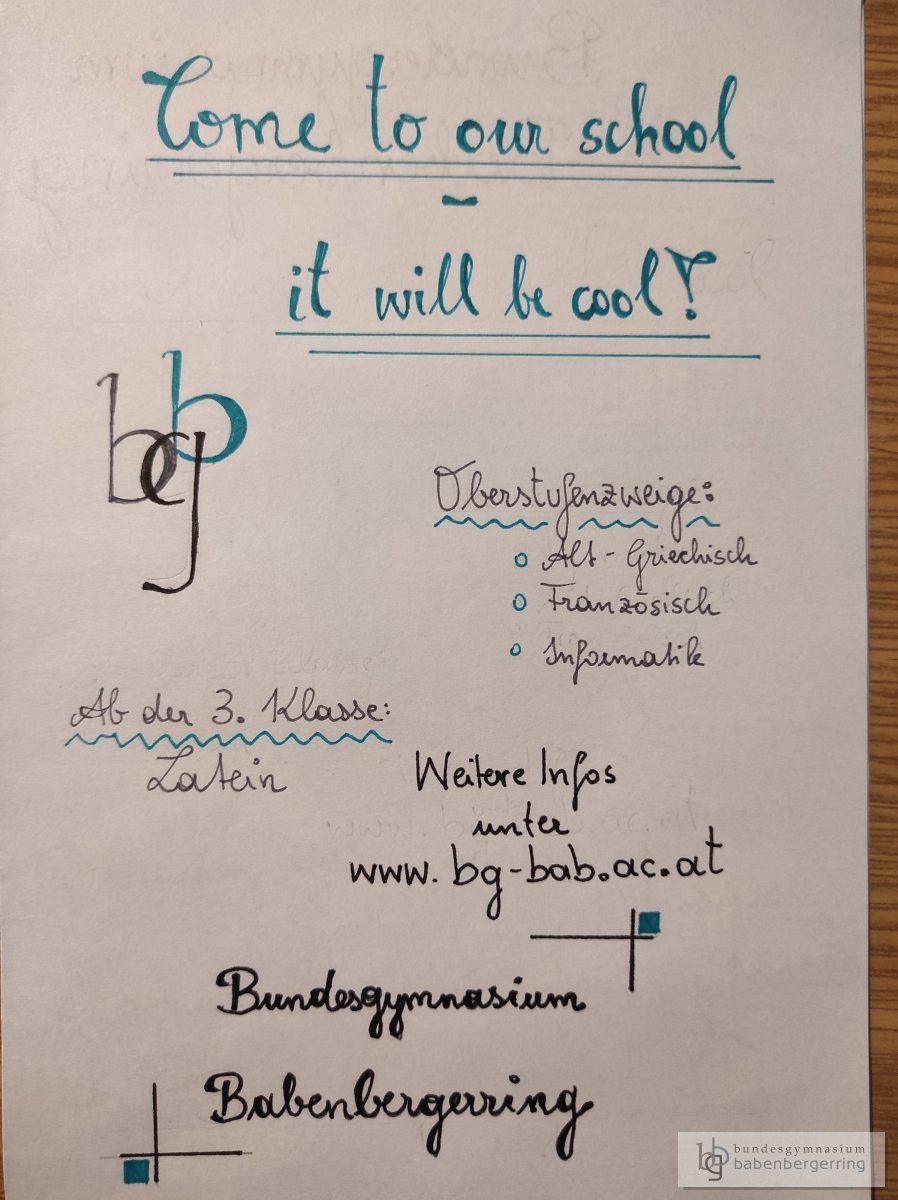 Come to our school
-
it will be cool!
bgb
Oberstufenzweige:
Alt-Griechisch
Französisch
Informatik
Ab der 3. Klasse:
Latein
Weitere Infos
unter
www.bg-bab.ac.at
Bundesgymnasium
Babenbergerring
bgb bundesgymnasium
babenbergerring